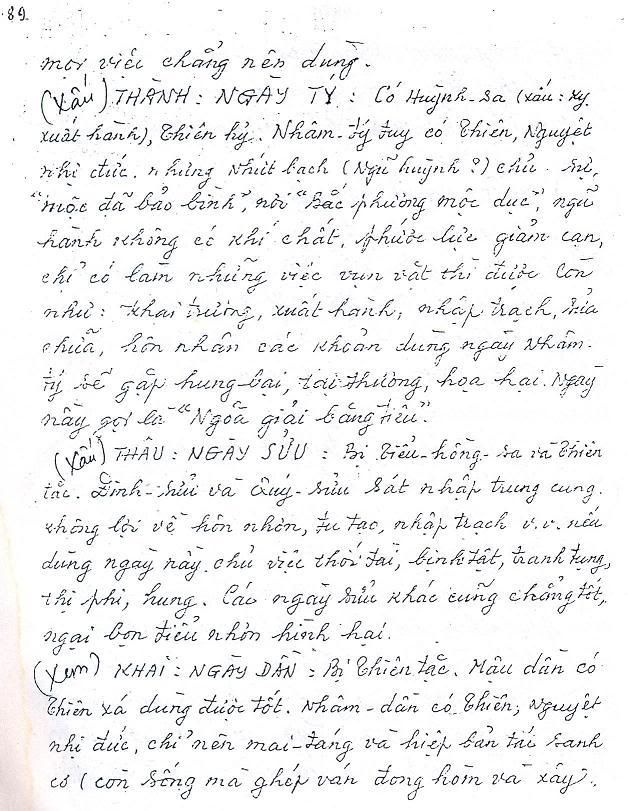 89
mọi việc chẳng nên dùng.
(xấu) THÀNH: NGÀY TÝ: Có Huỳnh-sa (xấu: kỵ
xuất hành), Thiên hỷ. Nhâm-tý tuy có Thiên, Nguyệt
nhị đức. nhưng Nhứt bạch (Ngũ huỳnh?) chủ sự,
"mộc đã bảo bình", nơi "Bắc phương mộc dục", ngũ
hành không có khí chất, phước lực giảm cạn,
chỉ có làm những việc vụn vặt thì được Còn
như: Khai trương, xuất hành, nhập trạch, sửa
chữa, hôn nhân các khoản dùng ngày Nhâm-
tý sẽ gặp hung bại, tại thương, họa hại. Ngày
nầy gọi là "Ngõa giải băng tiêu".
(xấu) THÂU: NGÀY SỬU: Bị Tiểu-hồng-sa và Thiên
tặc. Đinh-sửu và Quý-sửu Sát nhập trung cung.
không lợi về hôn nhơn, tu tạo, nhập trạch v.v. nếu
dùng ngày nầy chủ việc thối tài, binh tật, tranh tụng,
thị phi, hung. Các ngày sửu khác cũng chẳng tốt,
ngại bọn tiểu nhơn hình hại.
(xem) KHAI: NGÀY DẦN: Bị Thiên tặc. Mậu dần có
Thiên xá dùng được tốt. Nhâm-dần có Thiên, Nguyệt
nhị đức, chỉ nên mai-táng và hiệp bản tái sanh
cơ (còn sống mà ghép ván đóng hòm và xây